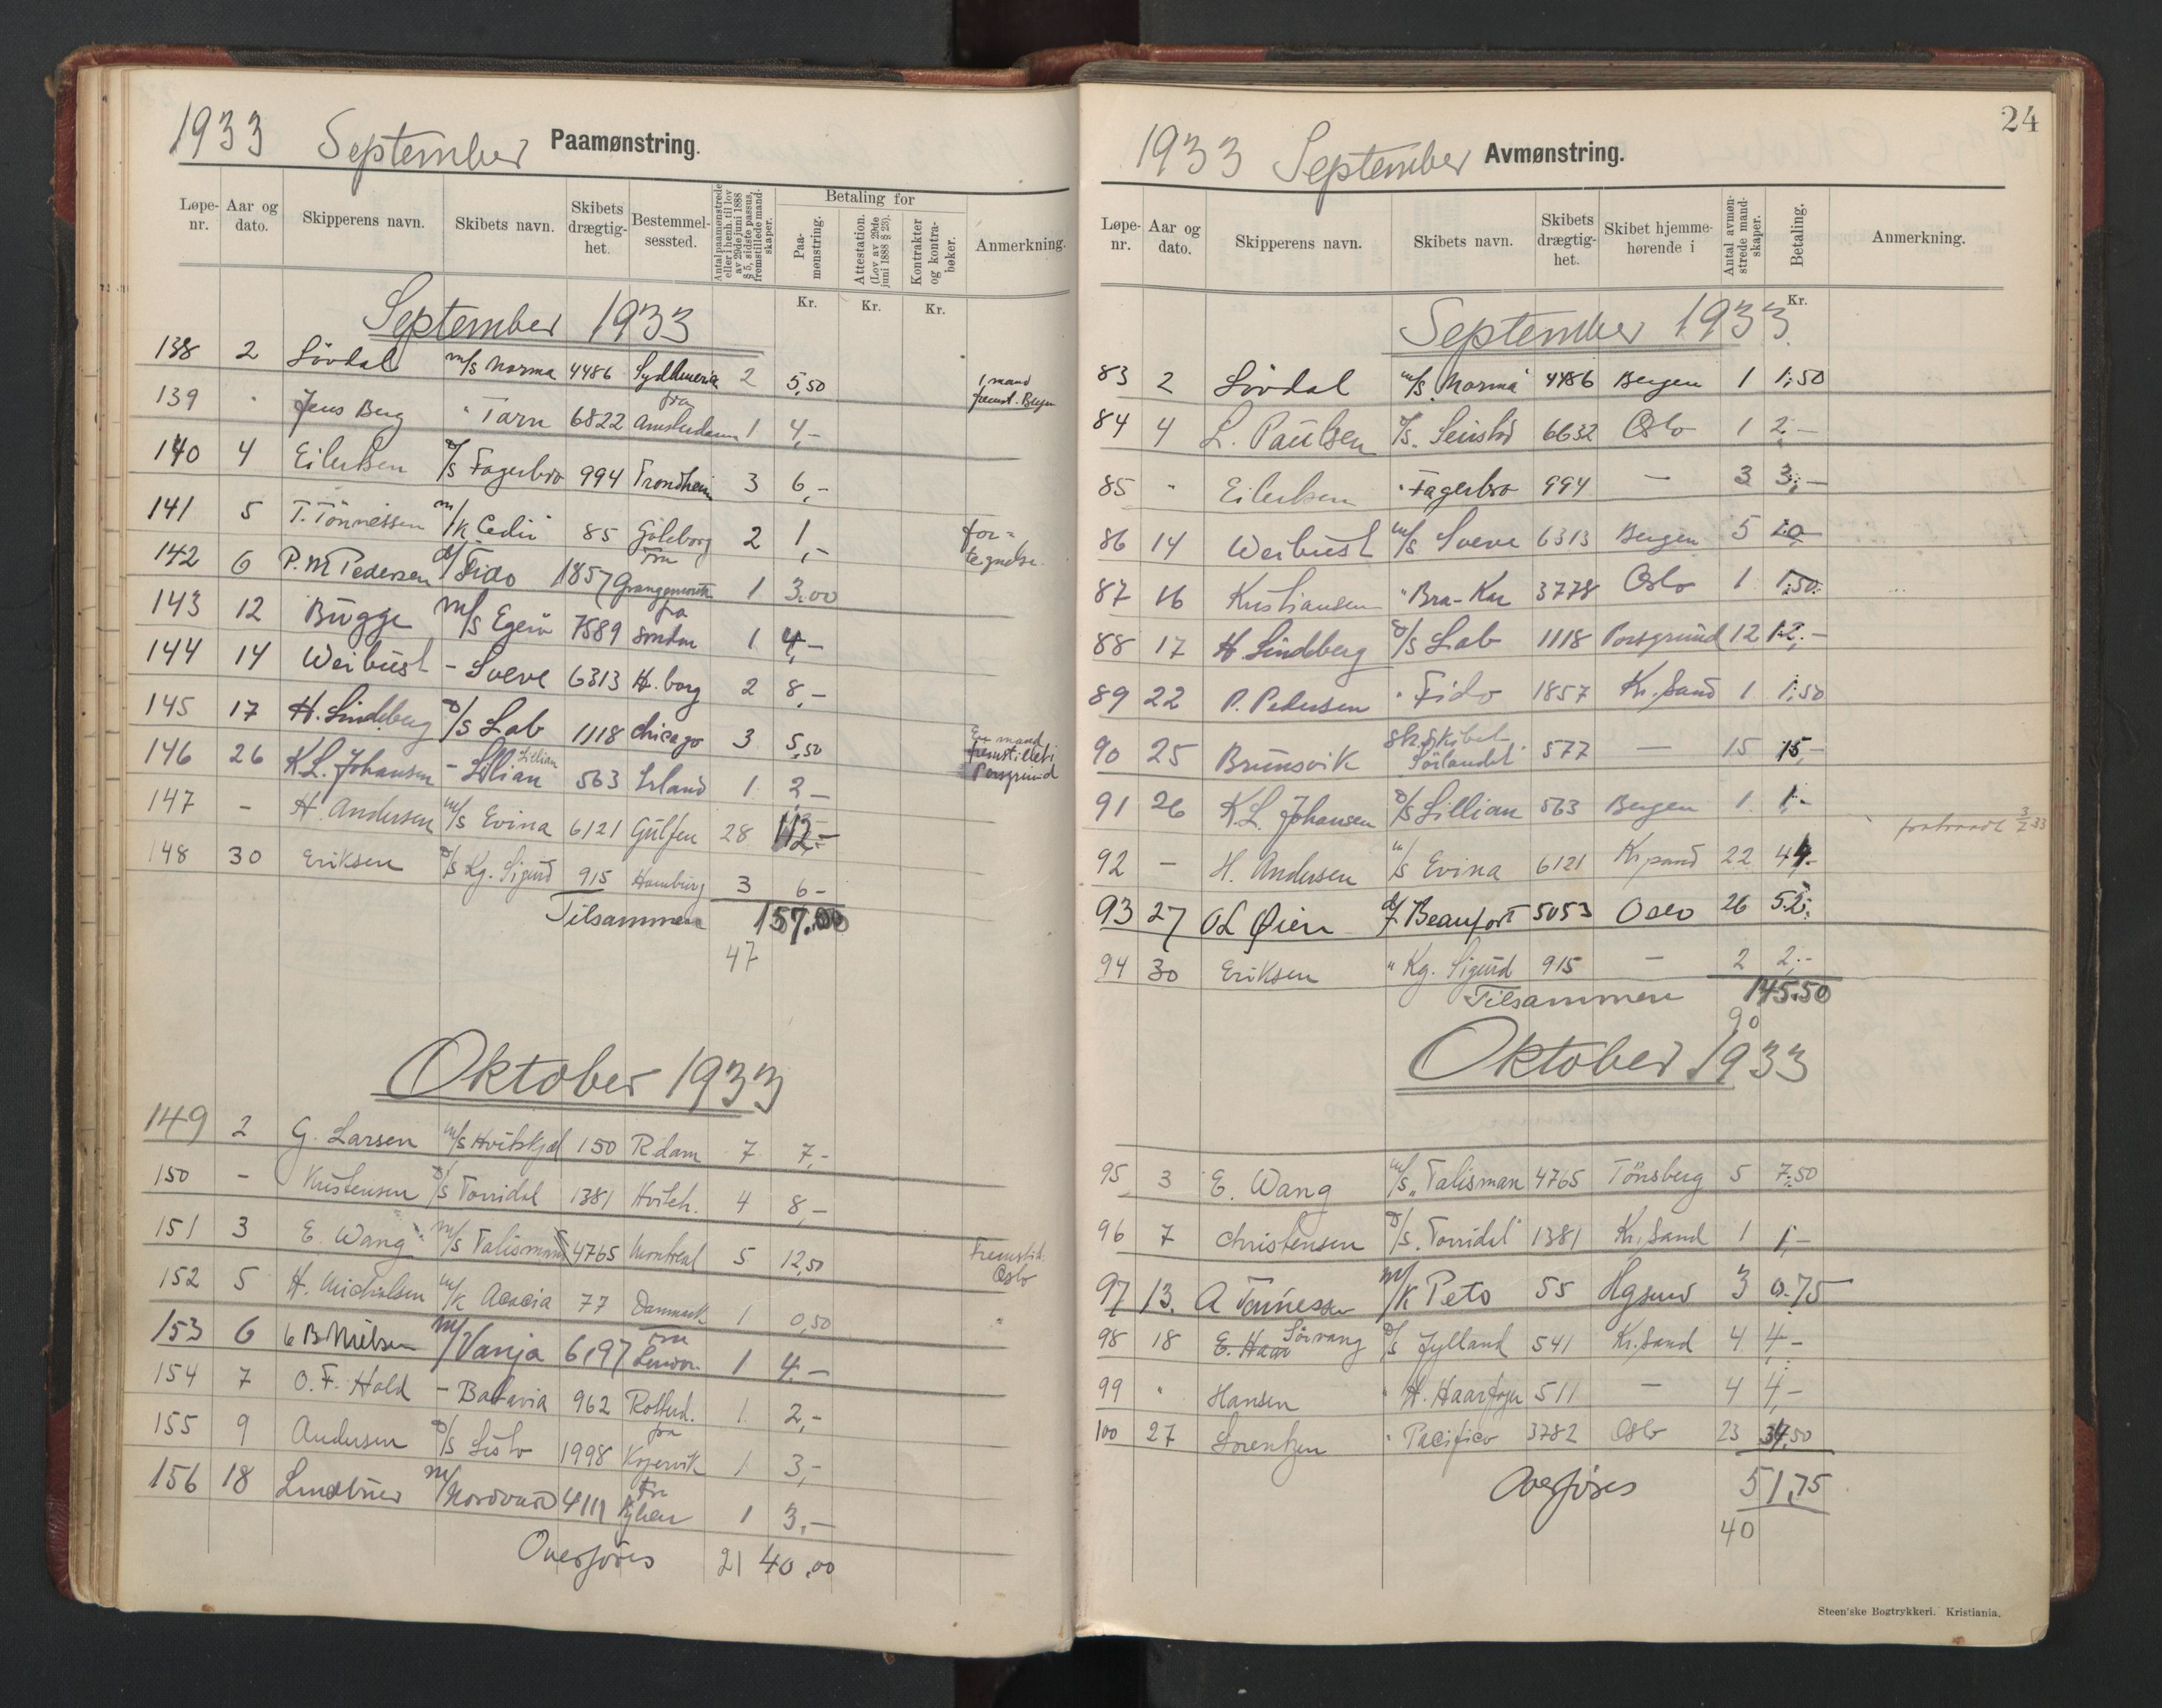 1933 September Paamønstring.
Løpe-nr. Aar og dato. Skipperens navn. Skibets navn. Skibets drægtig-het. Bestemmel-sessted. Antal paamønstrede eller i henh. til lov av 29de juni 1888 § 5, sidste passus, fremstillede mand-skaper. Betaling for Paa-mønstring. Attestation. (Lov av 29de juni 1888 § 23). Kontrakter og kontra-bøker. Anmerkning.
Kr. Kr. Kr.
September 1933
138 2 Lövdal m/s Norma 4486 SydAmerica 2 5,50 1 mand fremst. Bergen
139 " Jens Berg " Tarn 6822 fra Amsterdam 1 4,-
140 4 Eilertsen D/s Fagerbro 994 Trondheim 3 6,-
141 5 T. Tönnessen m/k Cedri 85 Göteborg 2 1,- for-tegnelse.
142 6 P. M Pedersen d/ Fido 1857 Fra Grangemouth 1 3.00
143 12 Bugge m/s Egerö 7589 fra London 1 4,-
144 14 Weibust - Sveve 6313 H.borg 2 8,-
145 17 H. Lindeberg D/s Lab 1118 Chicago 3 5,50 En mand fremstillet i Porsgrund
146 26 K.L. Johansen - Lillian Lillian 563 Irland 1 2,-
147 - H. Andersen m/s Evina 6121 Gulfen 28 112,-
148 30 Eriksen D/s Kg. Sigurd 915 Hamburg 3 6-
Tilsammen 157.00
47
Oktober 1933
149 2 G. Larsen m/s Hvitskjæl 150 R.dam 7 7,-
150 - Kristensen D/s Torridal 1381 Hviteh. 4 8,-
151 3 E. Wang m/s Talisman 4765 Montreal 5 12,50 Fremstil. Oslo
152 5 H. Michalsen m/k Acacia 77 Danmark 1 0,50 "
153 6 B Nielsen m/ Vanja 6197 Fra 1 4.-
154 7 O. F. Hold - Batavia 962 Rotterd. 1 2,-
155 9 Andersen D/s Lisbo 1998 fra Kopervik 1 3,-
156 18 m/ Nordvard 4111 Fra Kjhavn 1 3,-
Overføres 21 40.00
24
1933 September Avmønstring.
Løpe-nr. Aar og dato. Skipperens navn. Skibets navn. Skibets drægtig-het. Skibet hjemme-hørende i Antal avmøn-strede mand-skaper. Betaling. Anmerkning.
Kr.
September 1933
83 2 Lövdal m/s "Norma" 4486 Bergen 1 1.50
84 4 L. Paulsen T/s. 6632 Oslo 1 2.-
85 " Eilertsen " Fagerbro 994 - 3 3.-
86 14 Weibust m/s Sveve 6313 Bergen 5 10
87 16 Kristiansen " Bra-Kar 3778 Oslo 1 1.50.
88 17 H Lindeberg D/s Lab 1118 Porsgrund 12 12.-
89 22 P. Pedersen " Fido 1857 Kr.sand 1 1.50
90 25 Brunsvik Sk.skibet "Sörlandet" 577 - 15 15,-
91 26 K.L. Johansen D/s Lillian 563 Bergen 1 1.-
92 - H. Andersen m/s Evina 6121 Kr.sand 22 44.-
93 27 OL Øien d/ Beaufort 5053 Oslo 26 52.
94 30 Eriksen " Kg. Sigurd 915 - 2 2.-
Tilsammen 145.50
90
Oktober 1933
95 3 E. Wang m/s "Talisman 4765 Tönsberg 5 7.50
96 7 Christensen D/s. "Torridal" 1381 Kr.sand 1 1,-
97 13. A Tönnessen m/k Peto 55 Hgsund 3 0.75
98 18 E. Haar Sörvang D/s Jylland 541 Kr.sand 4 4,-
99 " Hansen " H. Haarfager 511 - 4 4,-
100 27 Lorentzen " Pacifico 3782 Oslo 23 34,50
Overføres 51,75
40
Steen'ske Bogtrykkeri. Kristiania.